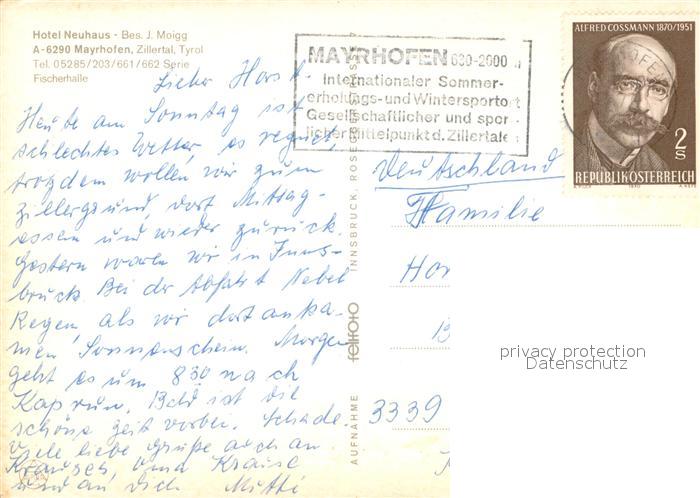 Hotel Neuhaus - Bes. J. Moigg
A-6290 Mayrhofen, Zillertal, Tyrol
Tel. 05285/203/661/662 Serie
Fischerhalle
Lieber Horst.
Heute am Sonntag ist
schlechtes Wetter, es regnet,
trotzdem wollen wir zum
Zillergrund, dort Mittag-
essen und wieder zurück.
Gestern waren wir in Inns-
bruck. Bei der Abfahrt Nebel
Regen, als wir dort anka-
men, Sonnenschein. Morgen
geht es um 8 30 nach
Kaprun. Bald ist die
schöne Zeit vorbei. Schade.
Viele liebe Grüße auch an
Oma Krause
und an Dich Mutti
MAYRHOFEN 630-2000 m
Internationaler Sommer-
erholungs- und Wintersportort
Gesellschaftlicher und spor-
licher Mittelpunkt d. Zillertales
ALFRED COSSMANN 1870/1951
2 S
REPUBLIK ÖSTERREICH
1970
Deutschland
Familie
Hor
3339
AUFNAHME fellfoto INNSBRUCK,
privacy protection
Datenschutz